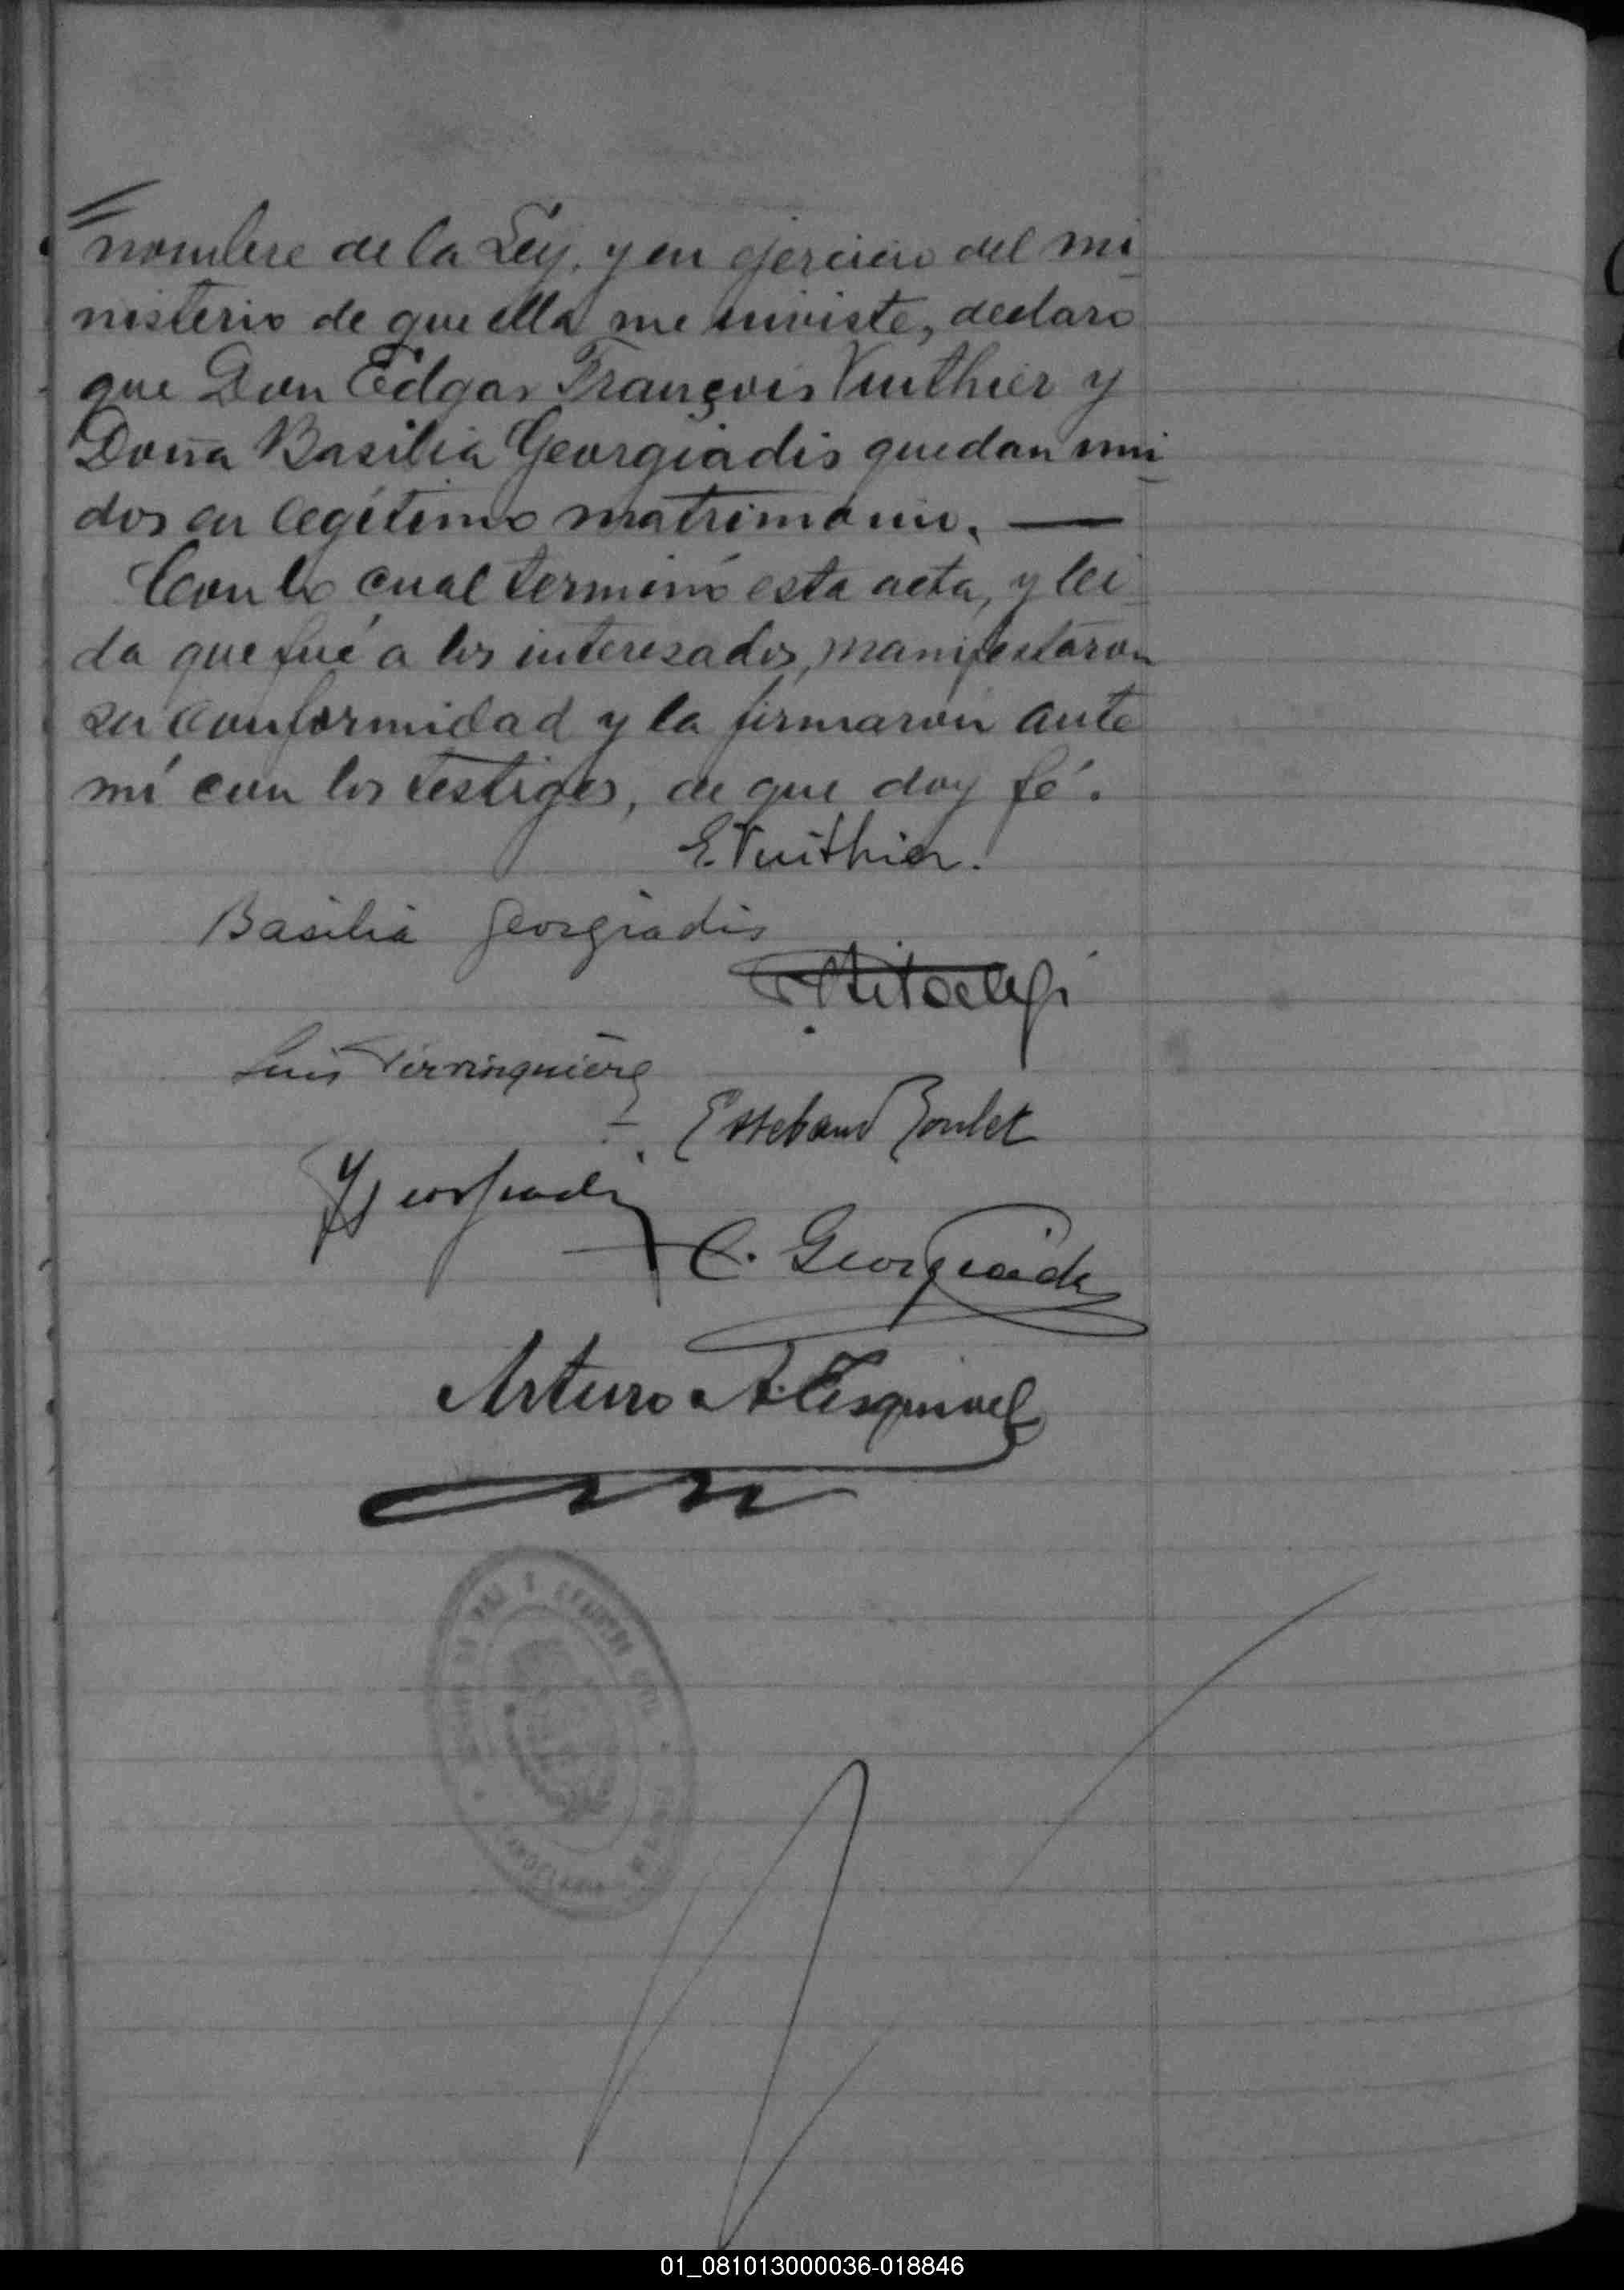 nombre de la Ley, y en ejercicio del mi
nisterio de que ella me inviste, declaro
que Don Edgar François Vuithier y
Doña Basilia Georgiadis quedan uni
dos en legítimo matrimonio. —
Con lo cual terminó esta acta, y lei
da que fué a los interesados, manifestaron
su conformidad y la firmaron ante
mí con los testigos, de que doy fé.
E. Vuithier.
Basilia Georgiadis
Luis
Esteban
C. Georgiadis
Arturo A. Esquivel
01_081013000036-018846